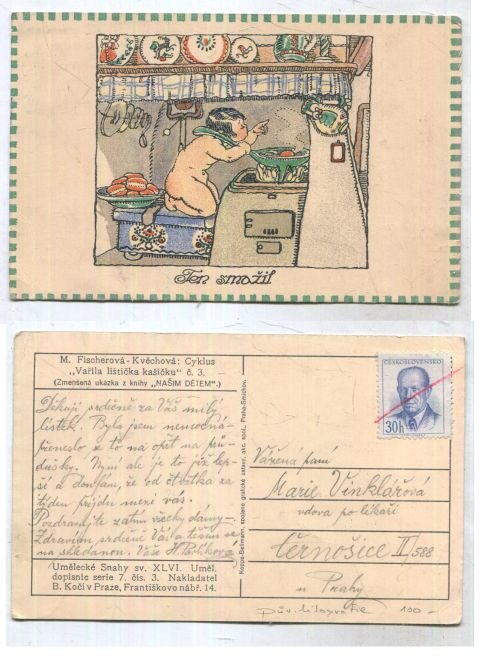 Ten smažil
M. Fischerová - Kvěchová: Cyklus
„Vařila lištička kašičku" č. 3.
(Zmenšená ukázka z knihy „NAŠIM DĚTEM".)
Děkuji srdečně za Váš milý
lístek. Byla jsem nemocná-
přeneslo se to na opět na prů-
dušky. Nyní ale je to již lep-
ší a doufám, že od čtvrtka za
týden přijdu mezi vás.
Pozdravujte zatím všecky dámy-
Zdravím srdečně Vás a těším se
na shledanou. Vaše
Umělecké Snahy sv. XLVI. Uměl.
dopisnic serie 7. čís. 3. Nakladatel
B. Kočí v Praze, Františkovo nábř. 14.
Koppe-Bellmann, spojené grafické ústavy, akc. spol., Praha-Smíchov.
ČESKOSLOVENSKO
30h
Vážená paní
Marie Vinklářová
vdova po lékaři
Černošice II/588
u Prahy
pův. litografie 100-